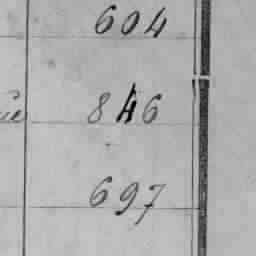 604
846
697